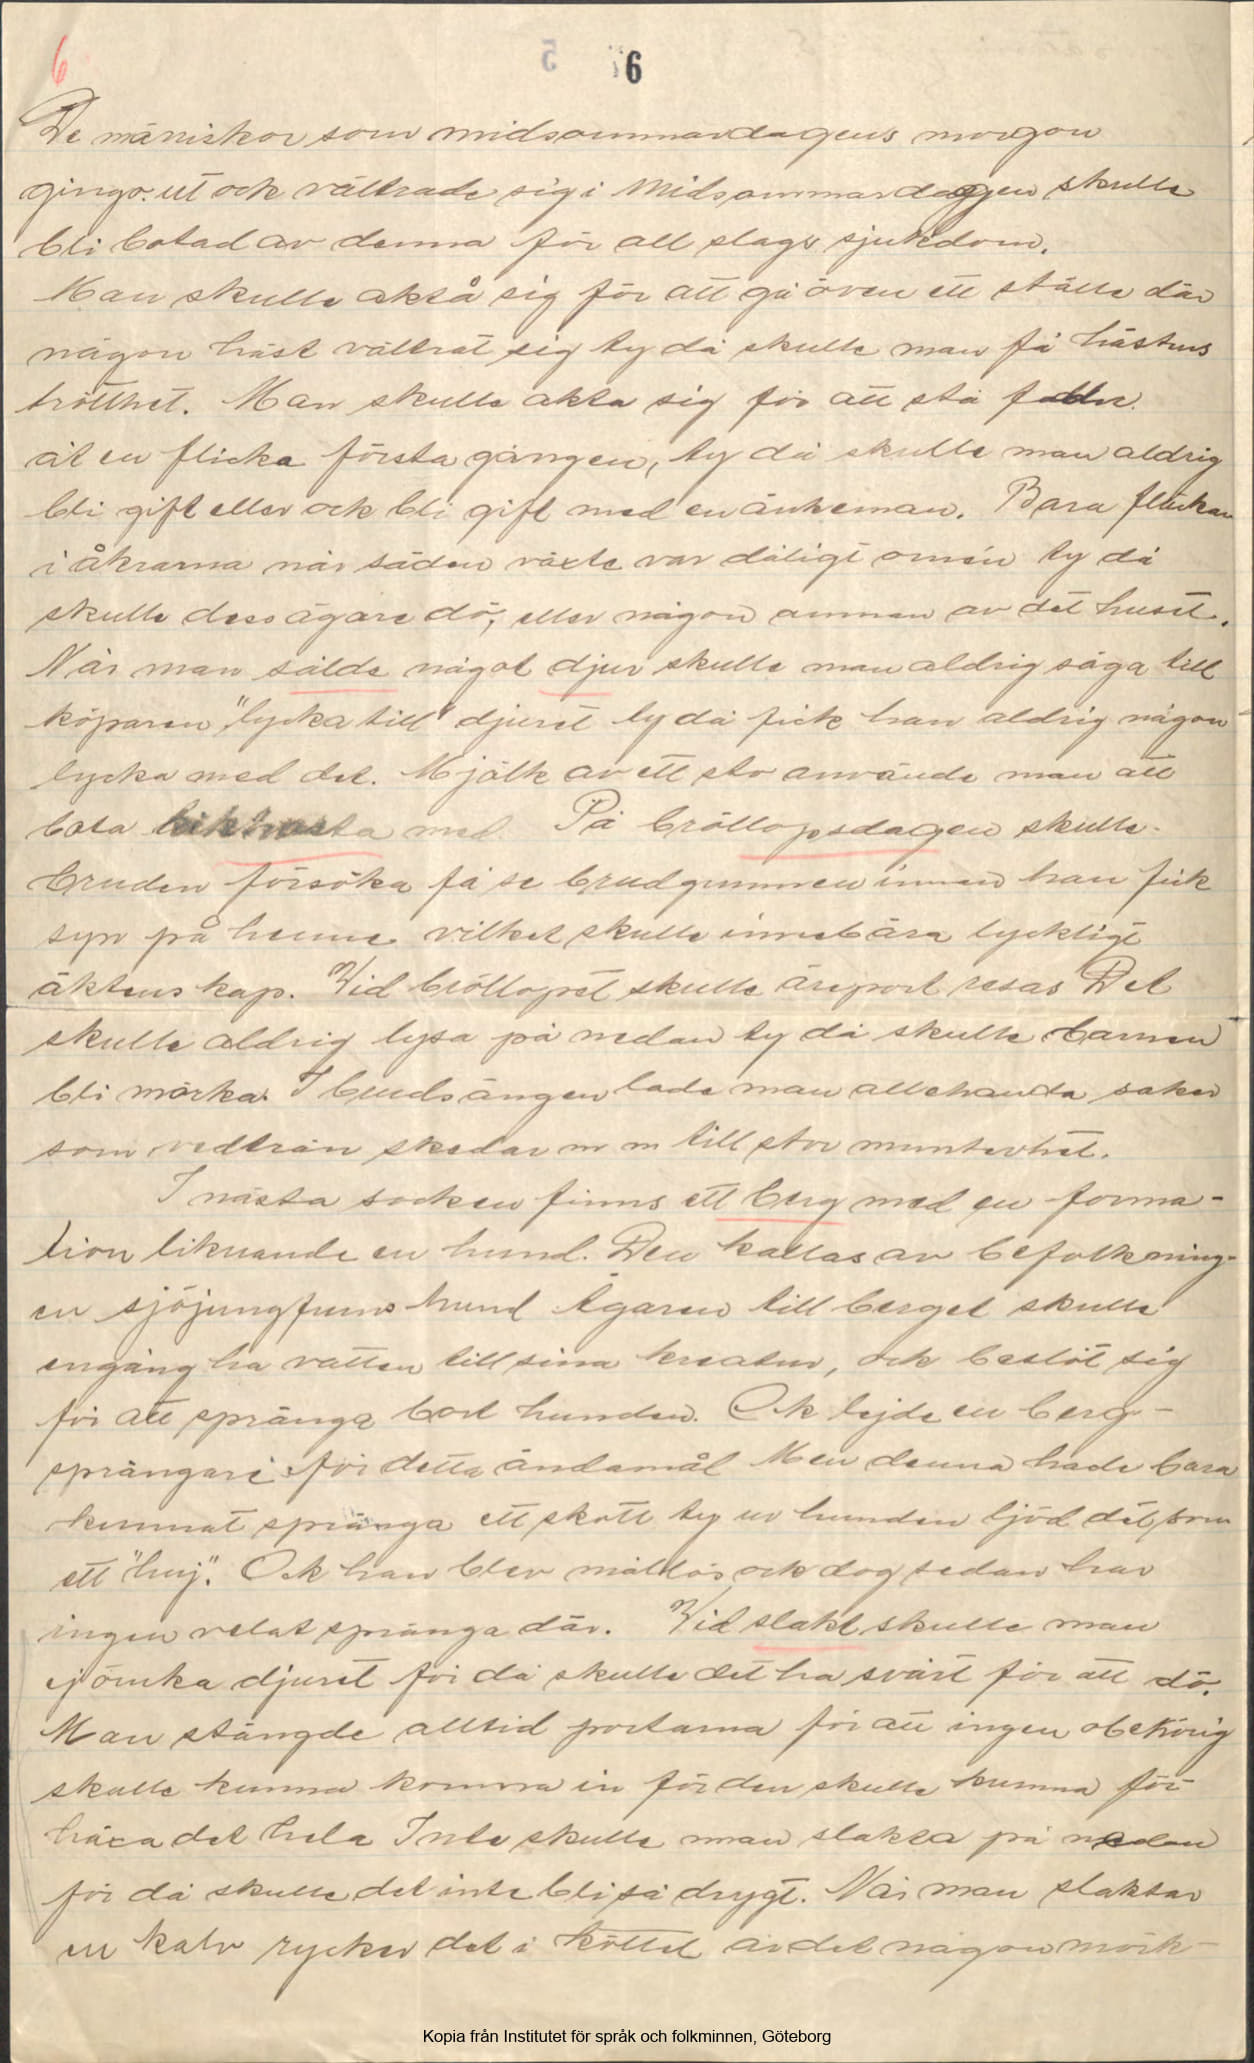 6
5 6
De mäniskor som midsommardagens morgon
gingo ut ock vältrade sig i Midsommardaggen skulle
bli botad av denna för all slags sjukdom.
Man skulle aktå sig för att gå över ett ställe där
någon häst vältrat sig ty då skulle man få hästens
trötthet. Man skulle akta sig för att stå fadder
åt en flicka första gången, ty då skulle man aldrig
bli gift eller ock bli gift med en änkeman. Bara fläckar
i åkrarna när säden växte var dåligt omén ty då
skulle dess ägare dö, eller någon annan av det huset.
När man sålde något djur skulle man aldrig säga till
köparen "lycka till" djuret ty då fick han aldrig någon
lycka med det. Mjölk av ett sto använde man att
bota kikhosta med. På bröllopsdagen skulle
bruden försöka få se brudgummen innan han fick
syn på henne vilket skulle innebära lyckligt
äktenskap. Vid bröllopet skulle äreport resas Det
skulle aldrig lysa på nedan ty då skulle barnen
bli mörka. I brudsängen lade man allehanda saker
som vedträn skedar m m till stor munterhet.
I nästa socken finns ett berg med en forma-
tion liknande en hund. Den kallas av befolkning-
en sjöjungfruns hund Ägaren till berget skulle
engång ha vatten till sina kreatur, ock beslöt sig
för att spränga bort hunden. Ock lejde en berg-
sprängare för detta ändamål Men denna hade bara
kunnat spränga ett skott ty ur hunden ljöd det som
ett "huj". Ock han blev mållös ock dog sedan har
ingen velat spränga där. Vid slakt skulle man
ej ömka djuret för då skulle det ha svårt för att dö.
Man stängde alltid portarna för att ingen obehörig
skulle kunna komma in för den skulle kunna för-
häxa det hela Inte skulle man slakta på nedan
för då skulle det inte bli så drygt. När man slaktar
en kalv rycker det i köttet är det någon mörk-
Kopia från Institutet för språk och folkminnen, Göteborg